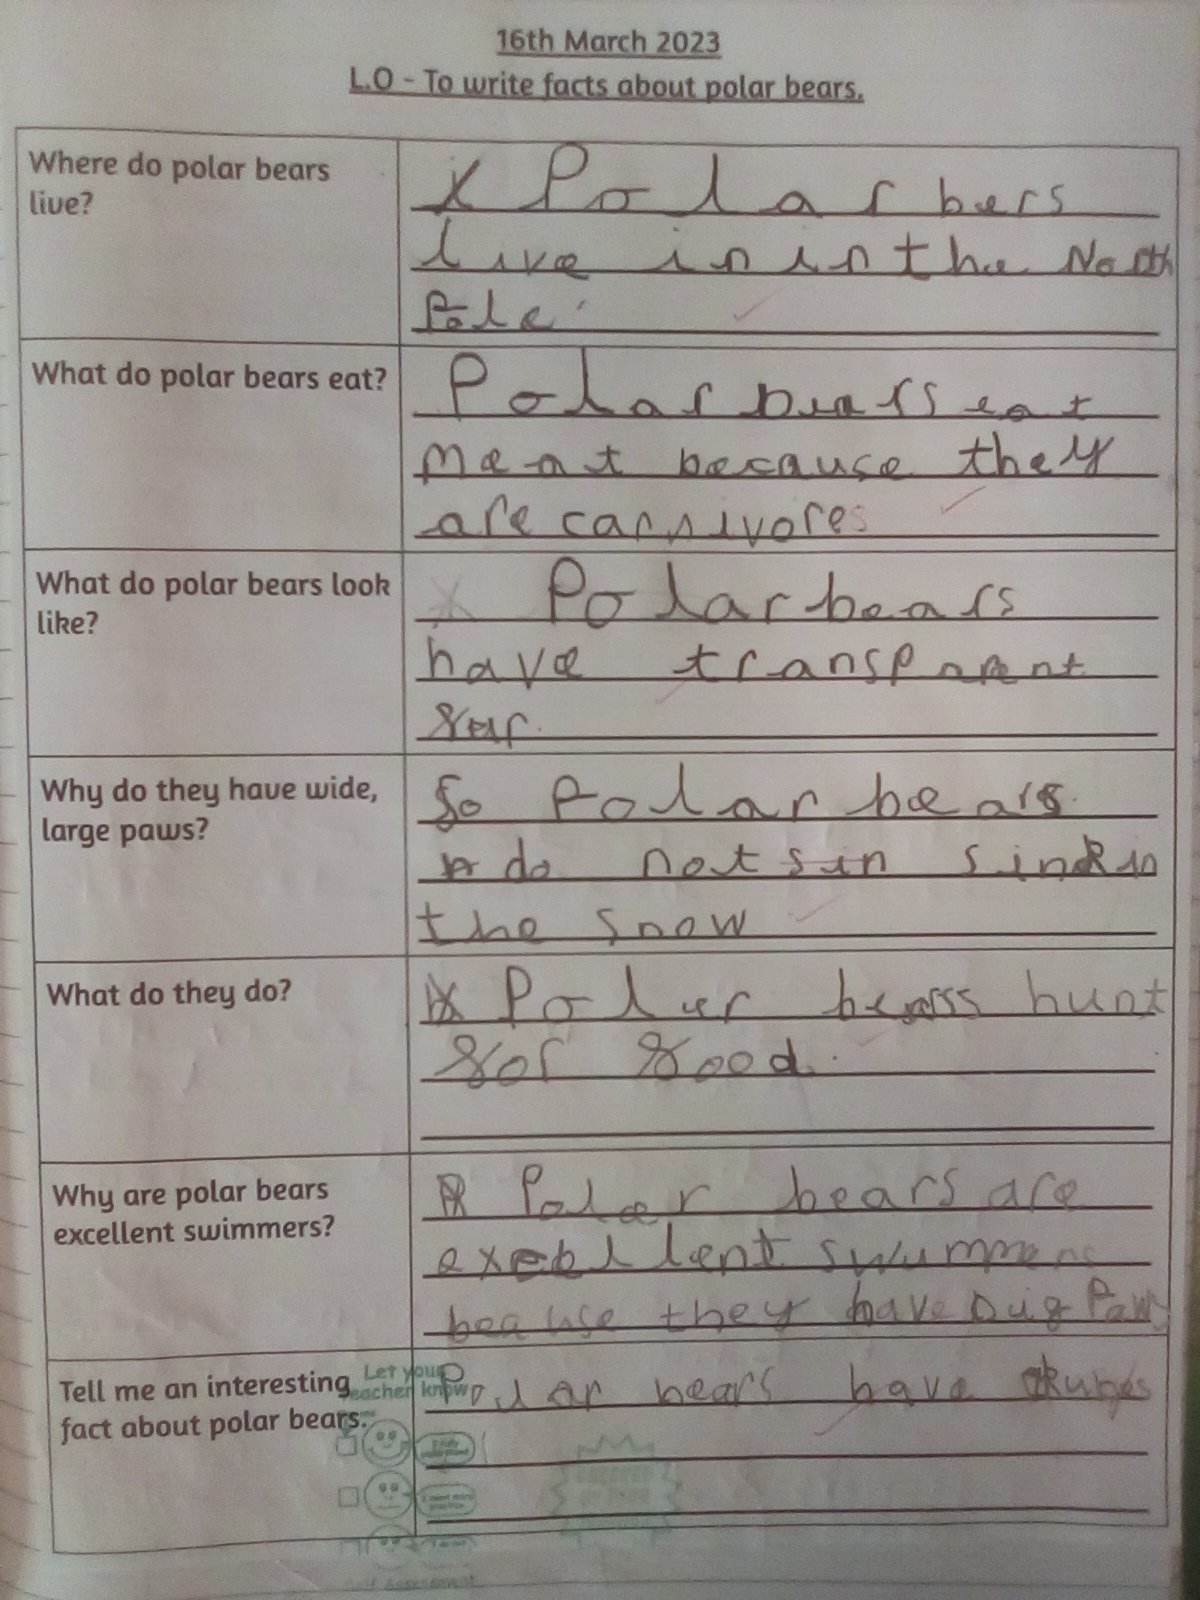 16th March 2023
L.O - To write facts about polar bears.
Where do polar bears
live?
Polar bers
live in in the North
Pole
What do polar bears eat?
Polar bears eat
meat because they
are carnivores
What do polar bears look
like?
Polar bears
have transparent
fur.
Why do they have wide,
large paws?
So Polar bears
do not sin sink in
the snow
What do they do?
Poler bears hunt
for food.
Why are polar bears
excellent swimmers?
Polar bears are
swimmers
because they have big Paws
Tell me an interesting
fact about polar bears.
Let your
teacher know
Polar bears have